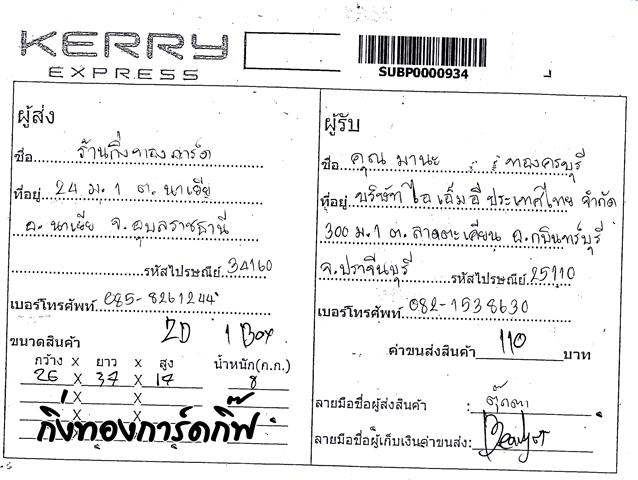 KERRY
EXPRESS
SUBP0000934
ผู้ส่ง
ชื่อ ร้านกิ่งทองการ์ด
ที่อยู่ 24 ม.1 ต. นาเยีย
อ. นาเยีย จ. อุบลราชธานี
รหัสไปรษณีย์ 34160
เบอร์โทรศัพท์ 085-8261244
ขนาดสินค้า 2D 1 Box
กว้าง X ยาว X สูง น้ำหนัก(ก.ก.)
26 X 37 X 17 8
X X
X X
กิ่งทองการ์ดกิ๊ฟ
ผู้รับ
ชื่อ คุณ มานะ ทองครบุรี
ที่อยู่ บริษัท ไอ เอ็ม อี ประเทศไทย จำกัด
300 ม.1 ต. ลาดตะเคียน อ.กบินทร์บุรี
จ.ปราจีนบุรี รหัสไปรษณีย์ 25110
เบอร์โทรศัพท์ 082-1538630
ค่าขนส่งสินค้า 110 บาท
ลายมือชื่อผู้ส่งสินค้า : ตุ๊กตา
ลายมือชื่อผู้เก็บเงินค่าขนส่ง: